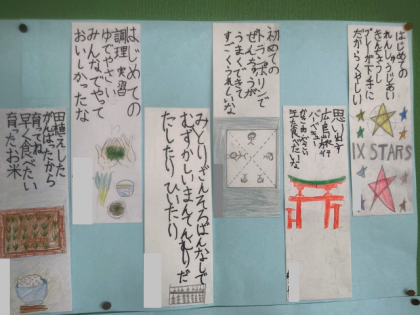 はじめての
れんしゅうじあい
きんちょうし
プレーが下手に
だからくやしい
IX STARS
初めての
トランポリンで
ぜんちゅうが
うまくできて
すごくうれしいな
思い出す
広島旅行
みどりちゃんそろばんなしで
むずかしいまんてんとりだ
たしたりひいたり
はじめての
調理実習
ゆでやさい
みんなでやって
おいしかったな
田植えした
がんばったから
育てね
早く食べたい
育ったお米